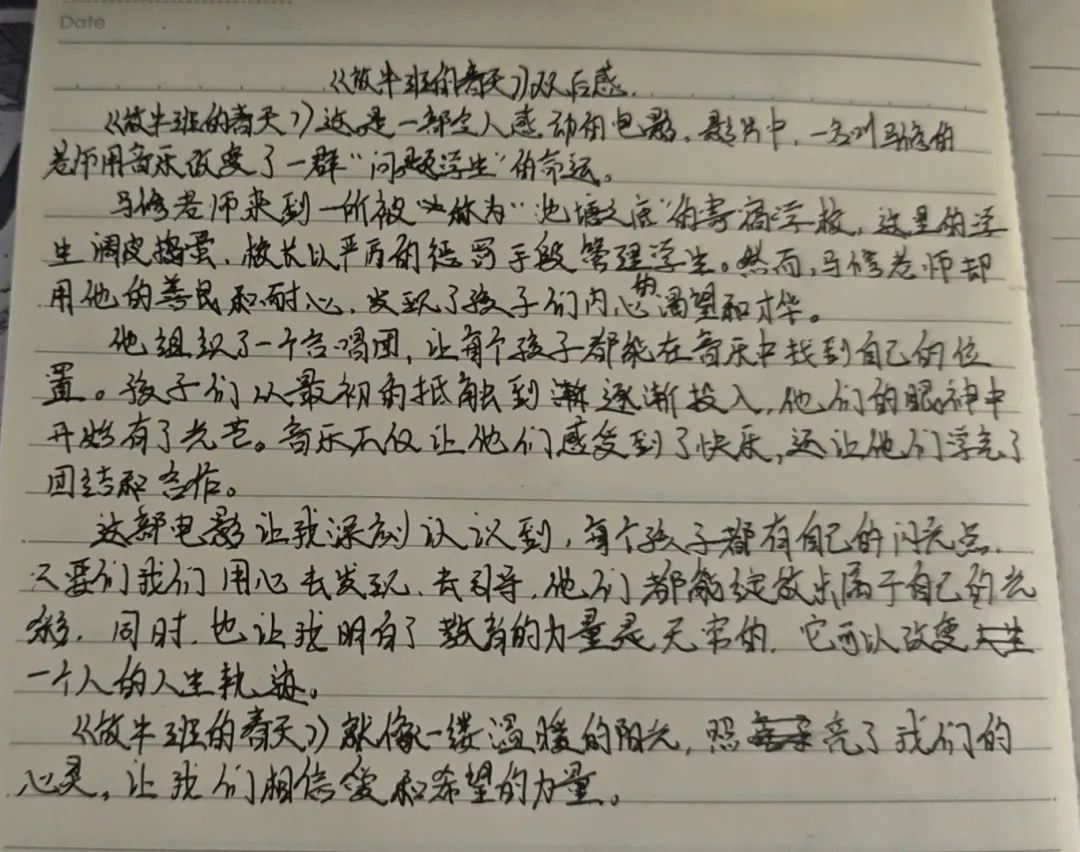 Date
《放牛班的春天》观后感
《放牛班的春天》这是一部令人感动的电影。影片中,一名叫马修的
老师用音乐改变了一群“问题学生”的命运。
马修老师来到一所被称为“池塘之底”的寄宿学校,这里的学
生调皮捣蛋,校长以严厉的惩罚手段管理学生。然而,马修老师却
用他的善良和耐心,发现了孩子们内心的渴望和才华。
他组织了一个合唱团,让每个孩子都能在音乐中找到自己的位
置。孩子们从最初的抵触到逐渐投入,他们的眼神中
开始有了光芒。音乐不仅让他们感受到了快乐,还让他们学完了
团结和合作。
这部电影让我深刻认识到,每个孩子都有自己的闪光点,
只要们我们用心去发现、去引导,他们都能绽放出属于自己的光
彩。同时,也让我明白了教育的力量是无穷的,它可以改变
一个人的人生轨迹。
《放牛班的春天》就像一缕温暖的阳光,照亮了我们的
心灵,让我们相信爱和希望的力量。